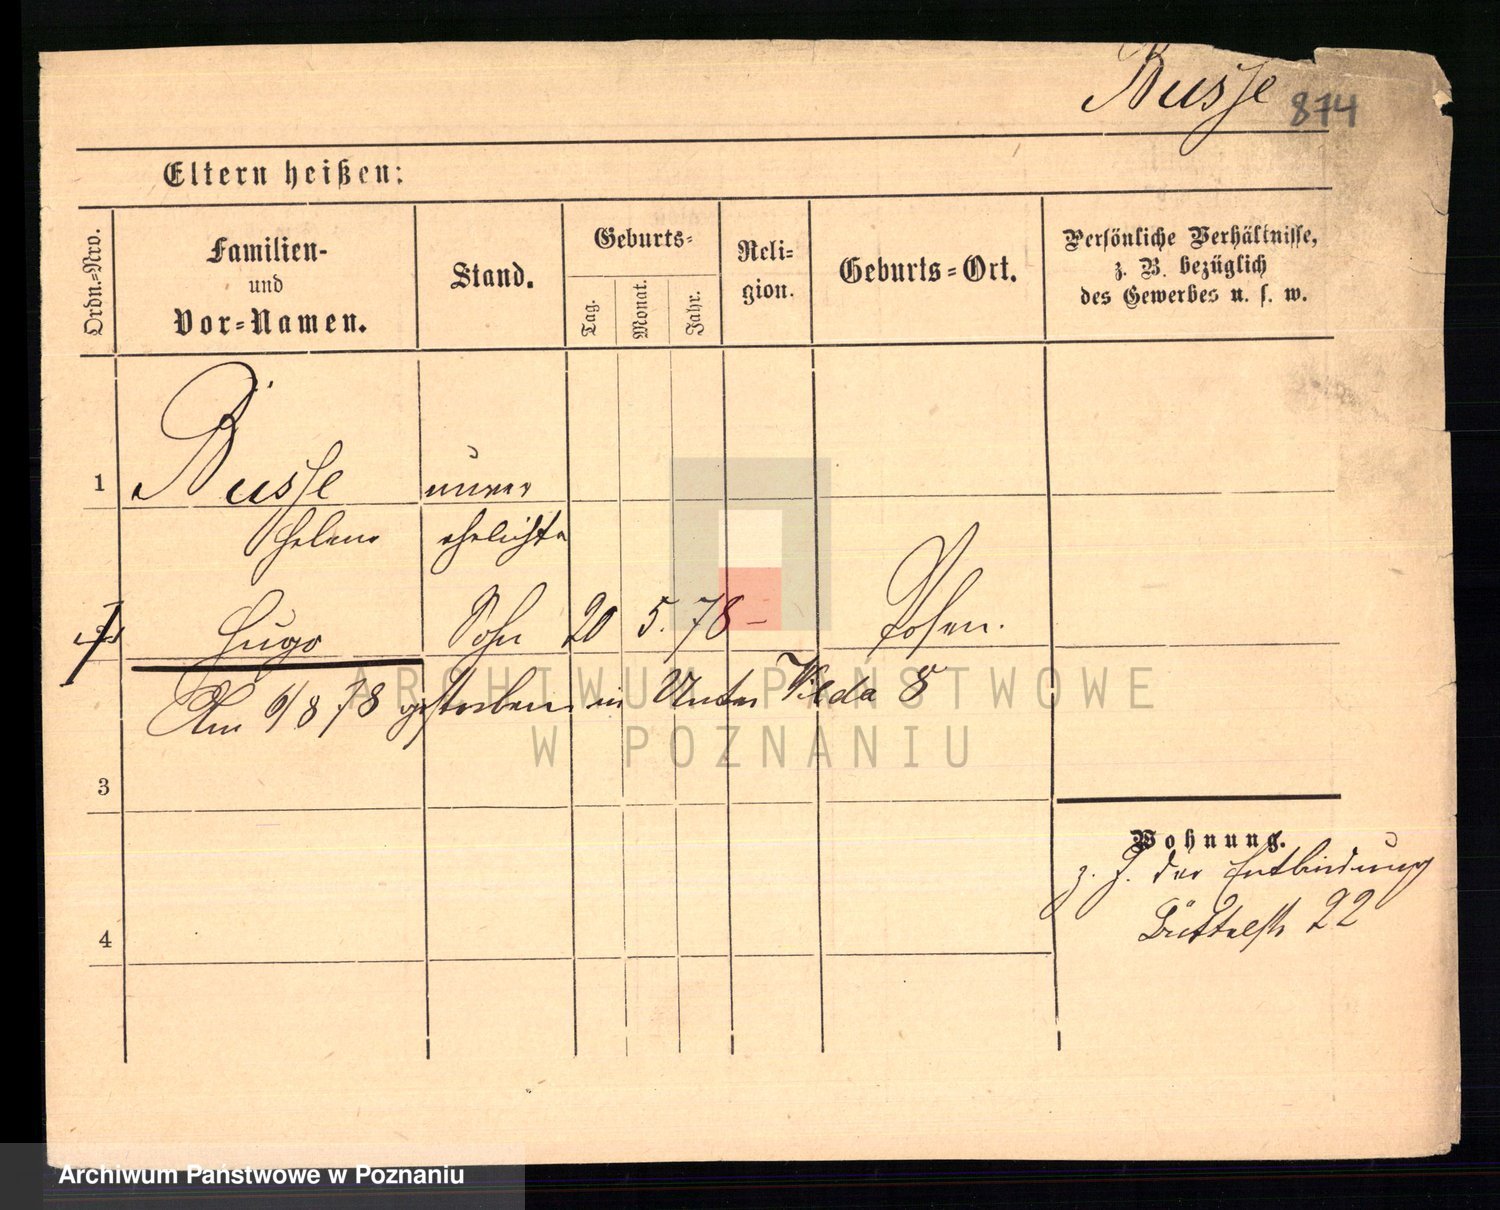 Busse 874
Eltern heißen:
Ordn.-Nro.
Familien-
und
Vor-Namen.
Stand.
Geburts-
Tag.
Monat.
Jahr.
Reli-
gion.
Geburts-Ort.
Persönliche Verhältnisse,
z. B. bezüglich
des Gewerbes u. s. w.
1 Busse unver
Helene ehelichte
Hugo Sohn 20 5. 78 – Posen.
Am 6/8 78 gestorben in Unter Wilda 8
3
Wohnung.
z. Z. der Entbindung
Büttelstr 22
4
ARCHIWUM PAŃSTWOWE
W POZNANIU
Archiwum Państwowe w Poznaniu